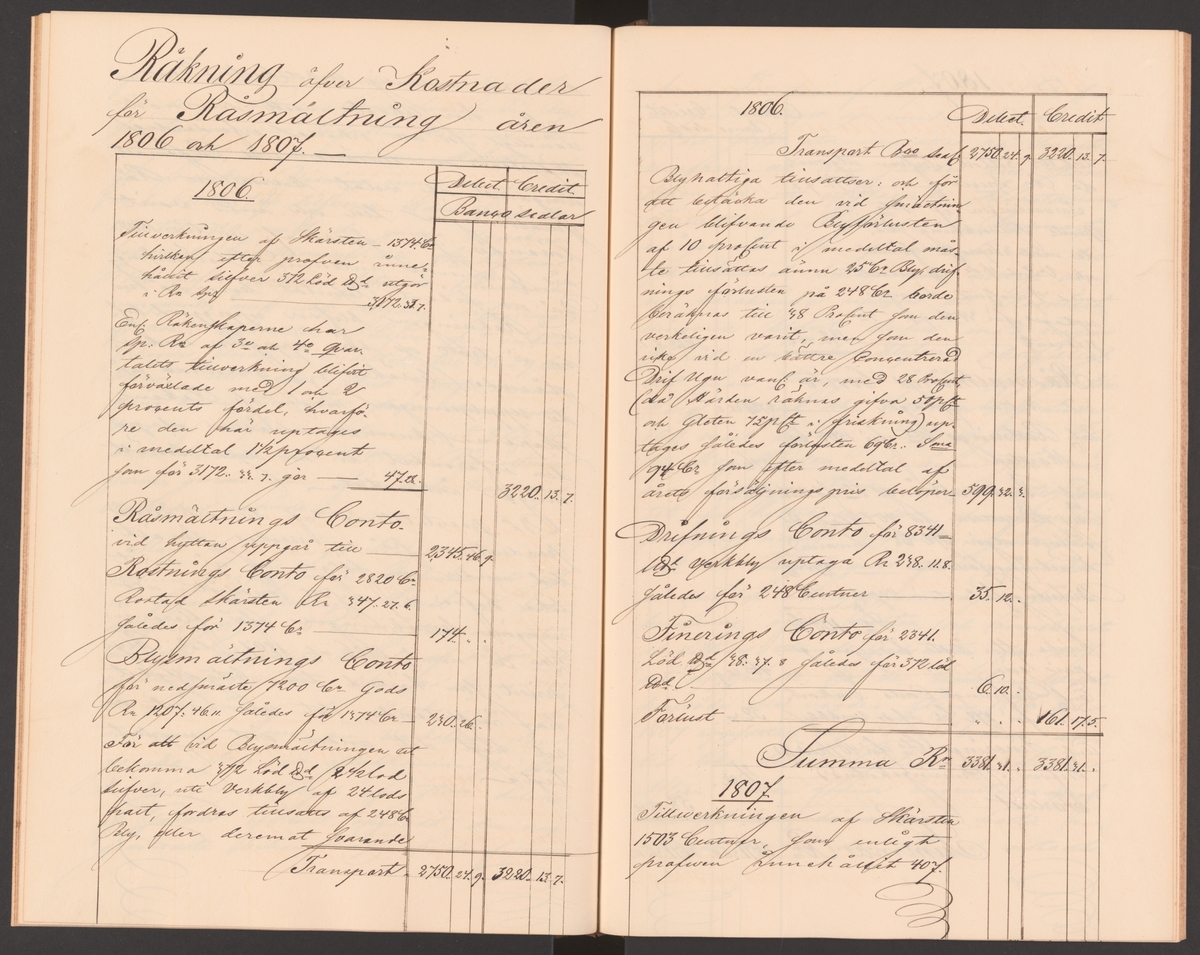 Råkning öfver Kostnader
för Råsmältning åren
1806 och 1807.
1806.
Debet. Credit.
Banco sedlar
Tillverkningen af Skärsten — 1374 Cr
hvilken efter profven inne-
hållit silfver 372 Löd utgör
i Rr 3172. 33. 7.
Enl. Räkenskaperne har
sp: Rr af 3e och 4e Qvar-
talets tillverkning blifvit
förväxlade med 1 och 2
procents fördel, hvarfö-
re den här uptages
i medeltal 1½ procent
som för 3172. 33. 7. gör — 47.28.
3220. 13. 7.
Råsmältnings Conto
vid hyttan uppgår till 2,345. 46. 9.
Rostnings Conto för 2820 Cr
Rostad Skärsten Rr 347. 27. 6.
således för 1374 Cr 174. . .
Blysmältnings Conto
för nedsmälte 7200 Cr Gods
Rr 1207: 46. 11. således för 1374 Cr 230. 26.
För att vid Blysmältningen ut
bekomma 372 Löd 2½ lod
silfver, uti Verkbly af 24 lods
halt, fordras tillsatts af 248 Cr
Bly, eller deremot svarande
Transport 2750. 24. 9. 3220. 13. 7.
1806.
Debet. Credit.
Transport Bco 2750. 24. 9. 3220. 13. 7.
Blyhaltiga tillsattser: och för
att betäcka den vid smältnin-
gen blifvande Blyförlusten
af 10 procent i medeltal mås-
te tillsättas ännu 25 Cr Bly; drif-
nings förlusten på 248 Cr borde
beräknas till 38 Procent som den
verkeligen varit, men som den
icke vid en bättre Concentrerad
Drif Ugn vanl. är, med 28 Procent,
(då Härden räknas gifva 50 pCt
och Gleten 75 pCt i friskning) up-
tages således förlusten 69 Cr. Sma
94 Cr som efter medeltal af
årets försäljningspris belöper 599. 32. 3.
Drifnings Conto för 8341
Verkbly uptaga Rr 238. 11. 8.
således för 248 Centner 35. 12. .
Finerings Conto för 2341.
Löd 38: 37. 8 således för 372 löd
6. 10. .
Förlust " . . 161. 17. 5.
Summa Rr 3381. 31. . 3381. 31. .
1807.
Tillverkningen af Skärsten
1503 Centner, som enligt
profven Innehållit 407.